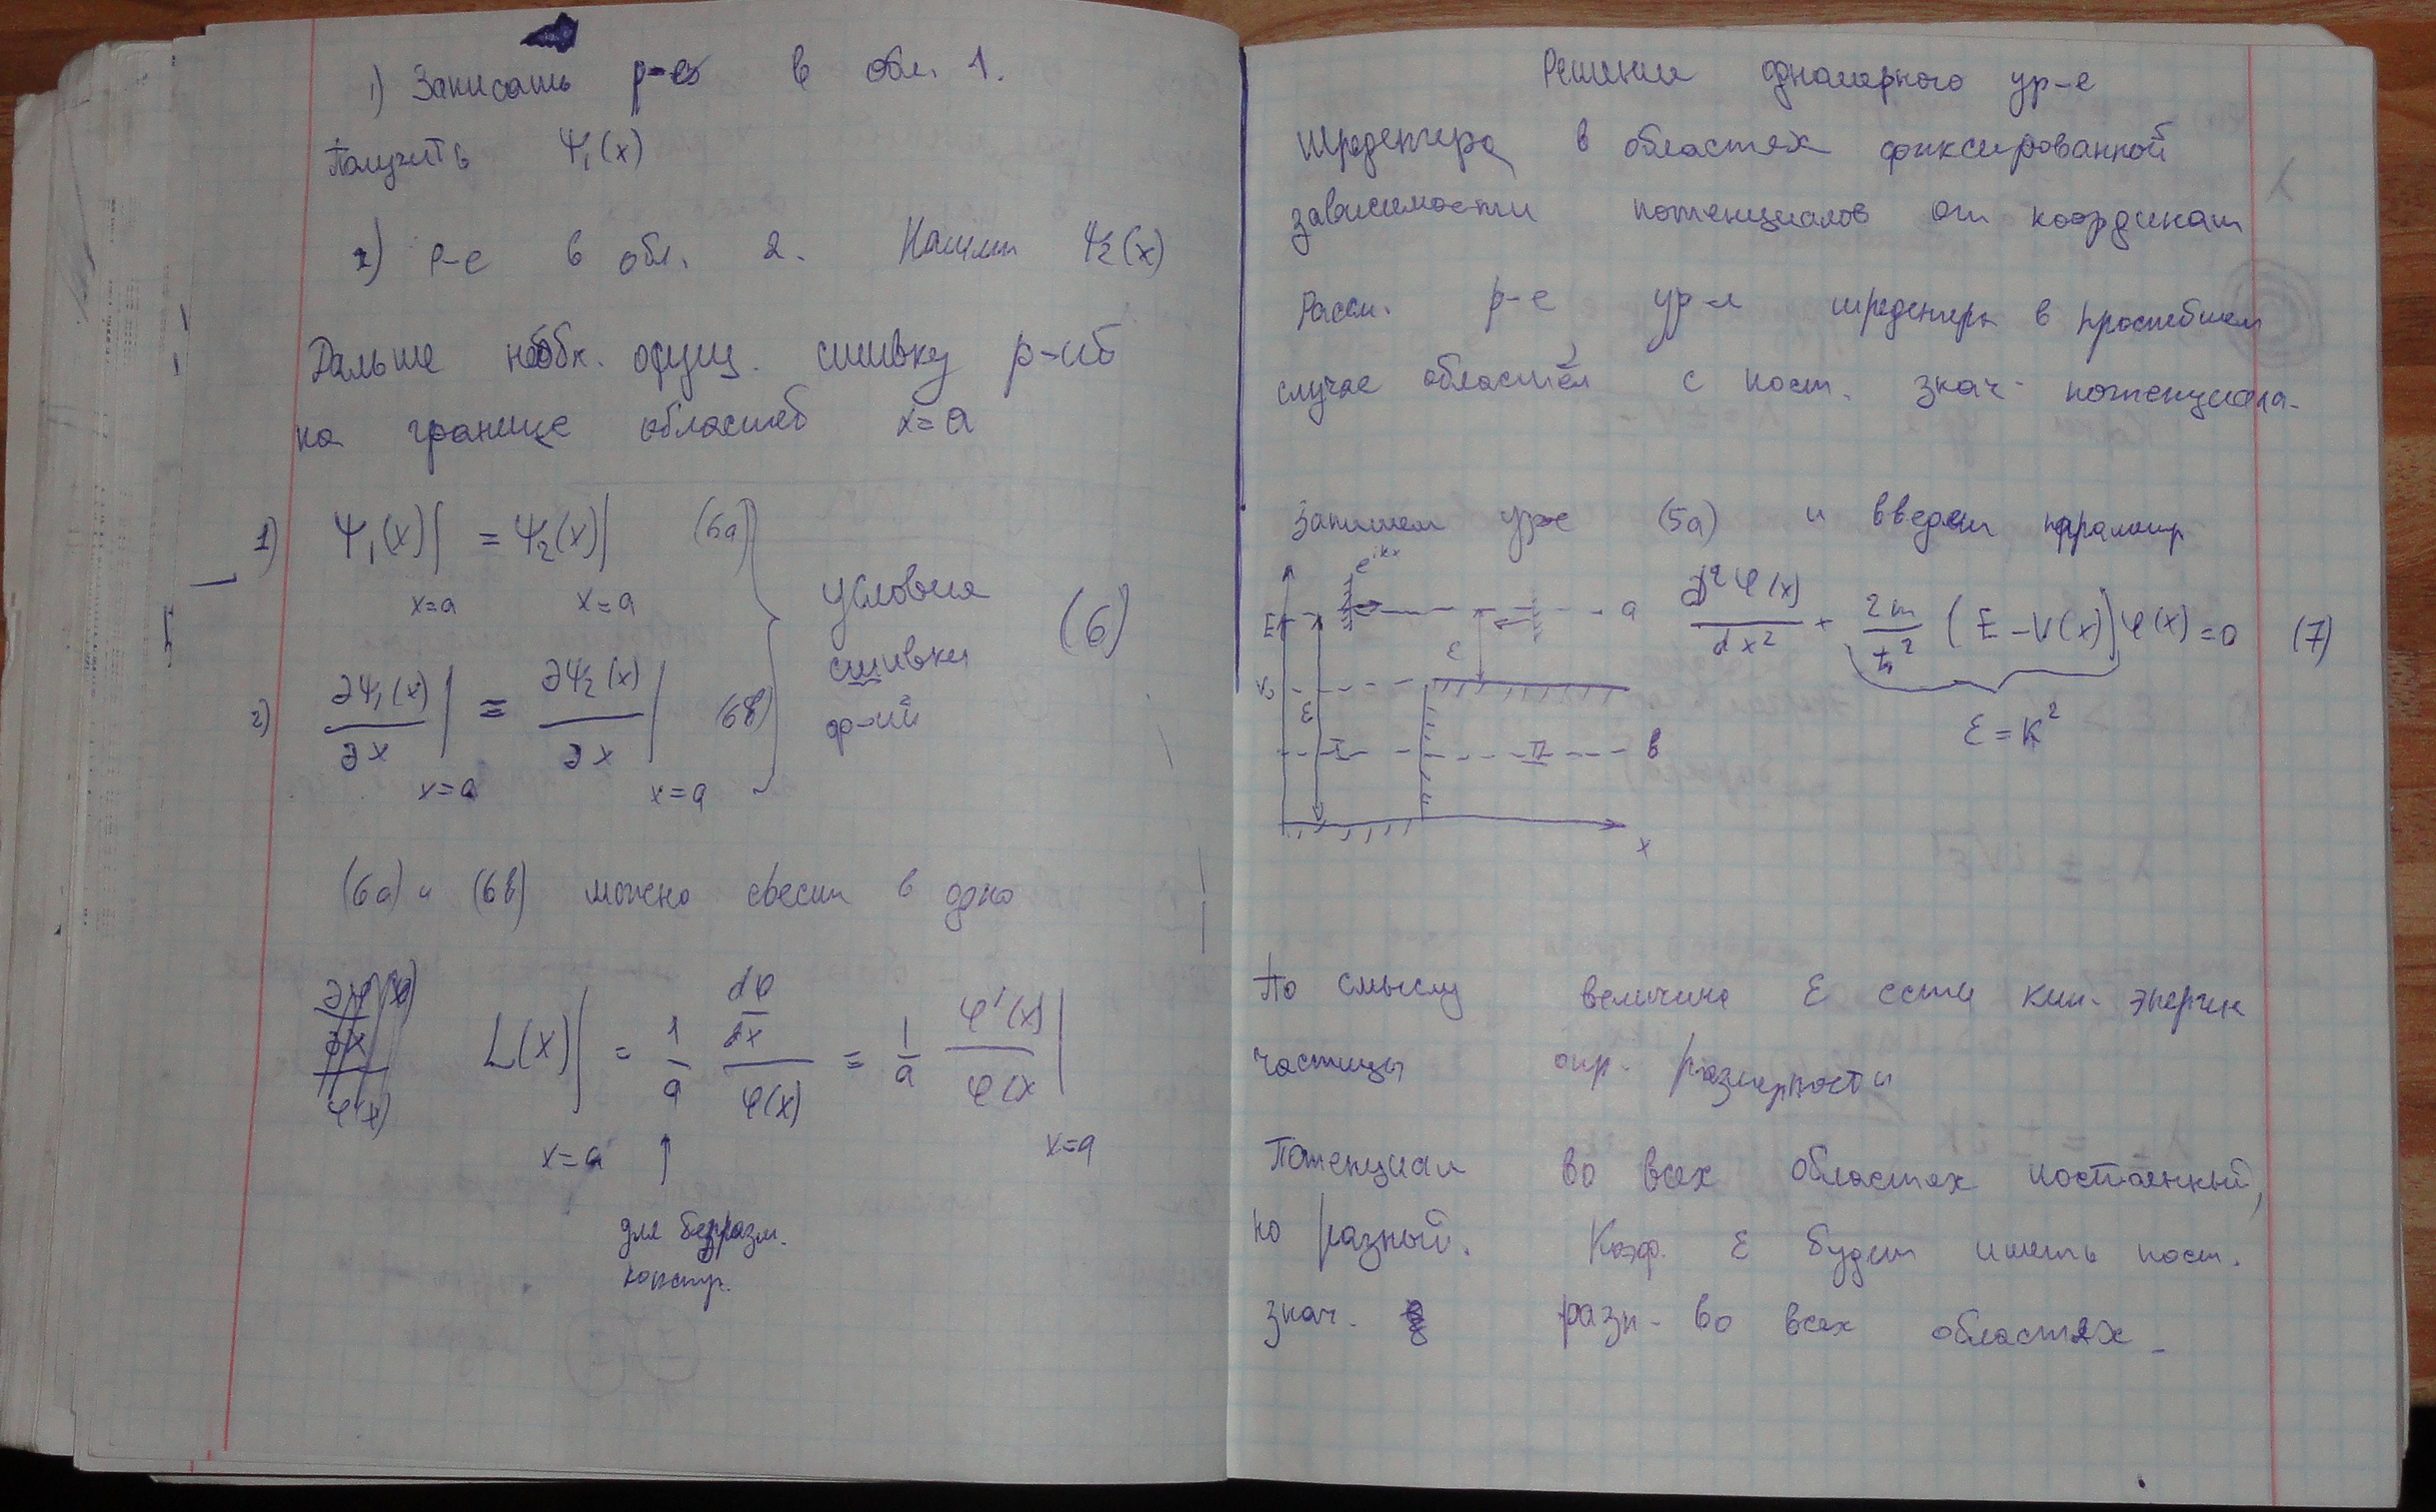 1) Записать р-е в обл. 1.
Получить Ψ₁(x)
2) Р-е в обл. 2. Ψ₂(x)
Дальше необх. осущ. сшивку р-ий
на границе областей x=a
1) Ψ₁(x)|x=a = Ψ₂(x)|x=a (6а)
2) ∂Ψ₁(x)/∂x|x=a = ∂Ψ₂(x)/∂x|x=a (6в)
условия
сшивки
ф-ий
(6)
(6а) и (6в) можно свести в одно
L(x)|x=a = 1/a (dφ/dx)/φ(x) = 1/a φ'(x)/φ(x|x=a
для безразм.
констр.
Решение одномерного ур-е
Шреденгера в областях фиксированной
зависимости потенциалов от координат
Рассм. р-е ур-я шредингера в простейшем
случае областей с пост. знач. потенциала.
Запишем ур-е (5а) и введем параметр
e^{ikx}
E
a
ε
V₀
ε
I
II
в
x
d²φ(x)/dx² + 2m/ħ² (E – V(x))φ(x) = 0 (7)
ε = k²
По смыслу величина ε есть кин. энергия
частицы опр. размерности
Потенциал во всех областях постоянный,
но разный. Коэф. ε будет иметь пост.
знач. разн. во всех областях.